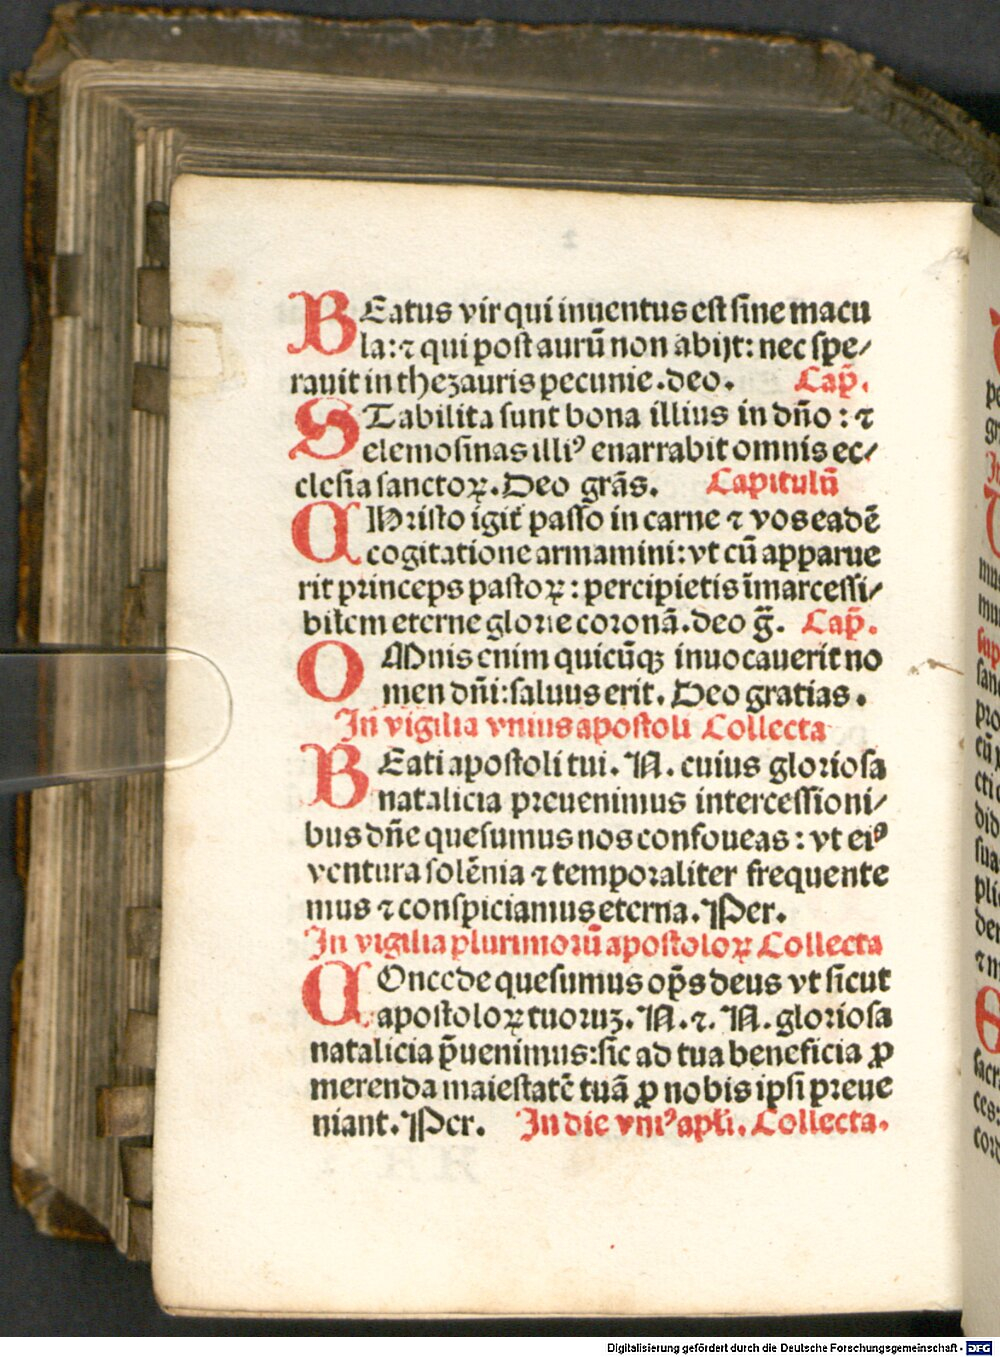 BEatus vir qui inuentus est sine macu
la: ⁊ qui post aurū non abijt: nec spe⸗
rauit in thezauris pecunie. deo. Cap̄.
STabilita sunt bona illius in dn̄o: ⁊
elemosinas illiꝰ enarrabit omnis ec⸗
clesia sanctoꝝ. Deo grās. Capitulū
CHristo igit̄ passo in carne ⁊ vos eadē
cogitatione armamini: vt cū apparue
rit princeps pastoꝝ: percipietis īmarcessi⸗
bilem eterne glorie coronā. deo g̅. Cap̄.
OMnis enim quicūqꝫ inuocauerit no
men dn̄i: saluus erit. Deo gratias.
In vigilia vnius apostoli Collecta
BEati apostoli tui. N. cuius gloriosa
natalicia preuenimus intercessioni⸗
bus dn̄e quesumus nos confoueas: vt eiꝰ
ventura solēnia ⁊ temporaliter frequente
mus ⁊ conspiciamus eterna. Per.
In vigilia plurimorū apostoloꝝ Collecta
COncede quesumus op̄s deus vt sicut
apostoloꝝ tuoruꝫ. N. ⁊. N. gloriosa
natalicia p̄uenimus: sic ad tua beneficia ꝓ
merenda maiestatē tuā ꝓ nobis ipsi preue
niant. Per. In die vniꝰ apl̄i. Collecta.
Digitalisierung gefördert durch die Deutsche Forschungsgemeinschaft - DFG